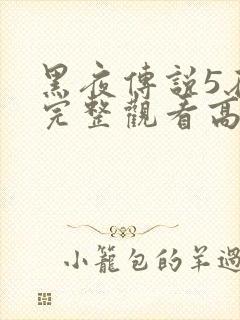 黑夜傳說5
完整觀看高
小籠包的羊過